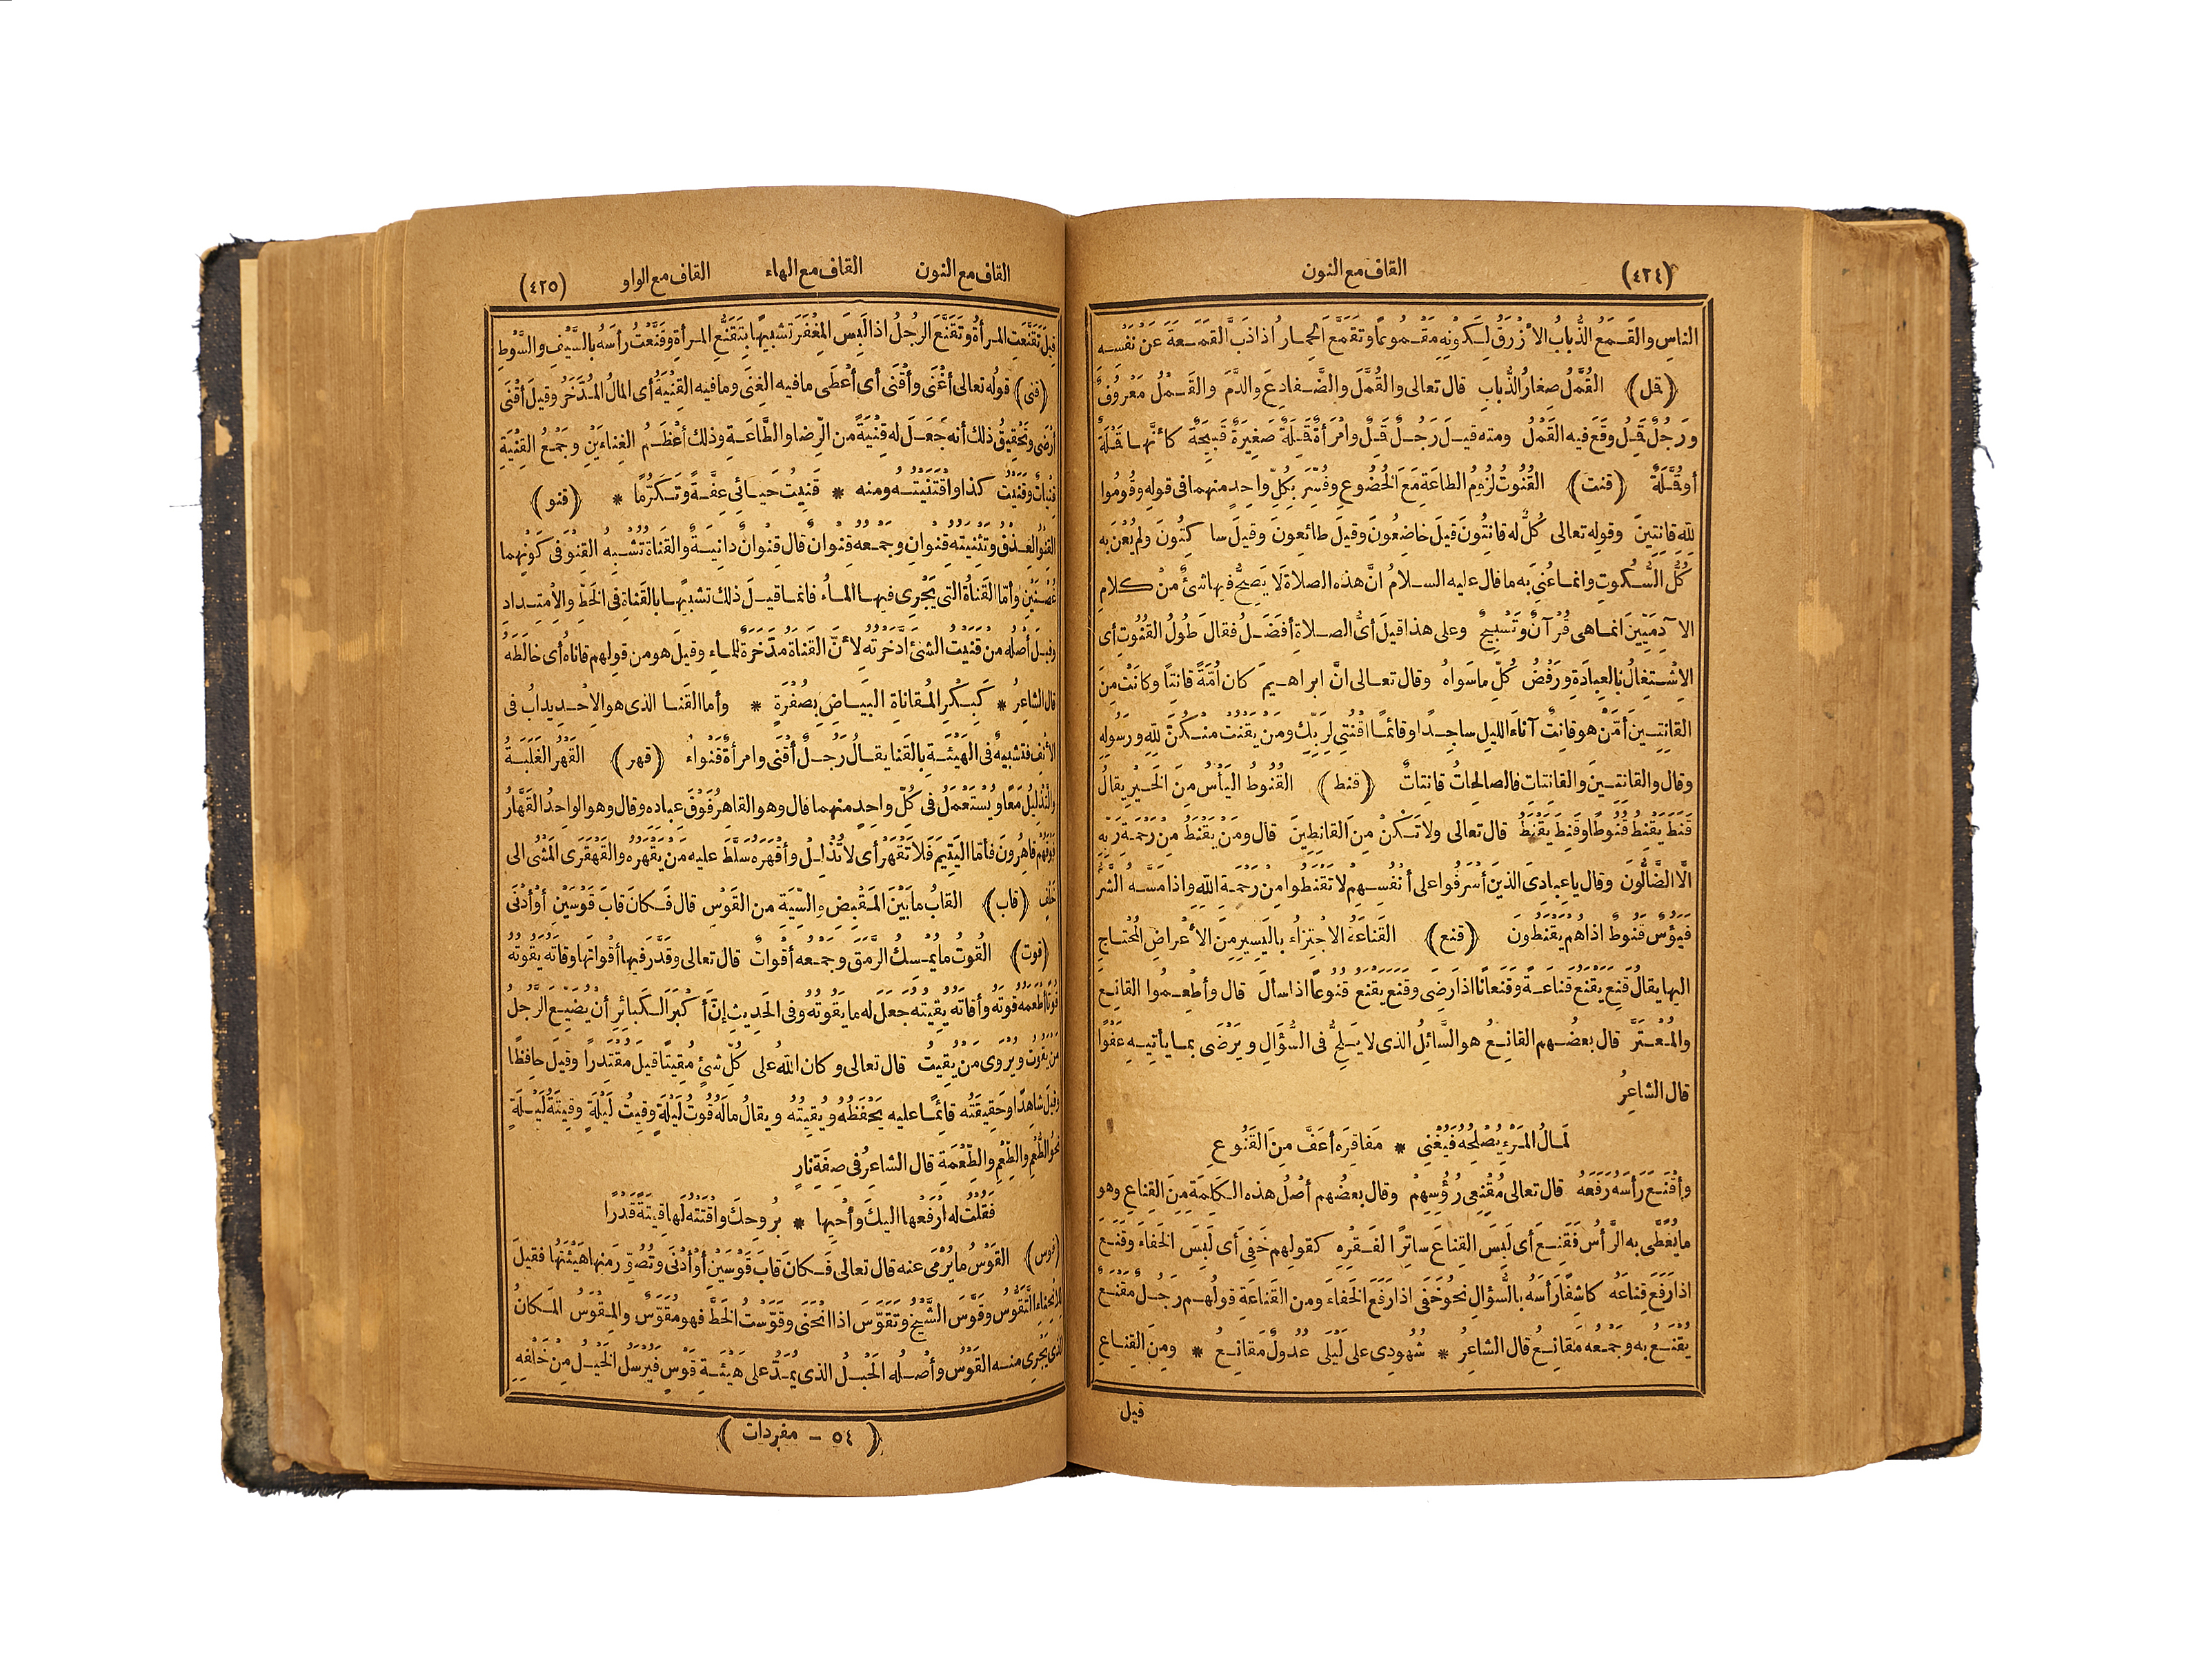 (٤٢٤)
القاف مع النون
الناسِ والقَمَعُ الذُّبابُ الأَزْرَقُ لِكَوْنِهِ مَقْمُوعًا وتَقَمَّعَ الحِمارُ اذا ذَبَّ القَمَعَةَ عَنْ نَفْسِهِ
(قمل) القُمَّلُ صِغارُ الذُّبابِ قال تعالى والقُمَّلَ والضَّفادِعَ والدَّمَ والقَمْلُ مَعْرُوفٌ
ورَجُلٌ قَمِلٌ وقَعَ فيه القَمْلُ ومنه قيلَ رَجُلٌ قَمِلٌ وامْرَأَةٌ قَمِلَةٌ صَغِيرَةٌ قَبِيحَةٌ كأنَّها قَمْلَةٌ
أو قُمَّلَةٌ (قنت) القُنُوتُ لُزُومُ الطاعَةِ مَعَ الخُضُوعِ وفُسِّرَ بِكُلِّ واحِدٍ منهما فى قولِه وقُومُوا
لِلّهِ قانِتِينَ وقولِه تعالى كُلٌّ له قانِتُونَ قيلَ خاضِعُونَ وقيلَ طائِعونَ وقيلَ ساكِتُونَ ولم يُعْنَ به
كُلُّ السُّكُوتِ وانما عُنِىَ به ما قال عليه السلامُ انَّ هذه الصلاةَ لا يَصِحُّ فيها شىءٌ مِنْ كلامِ
الآدمِيِّينَ انما هى قُرْآنٌ وتَسْبِيحٌ وعلى هذا قيلَ أىُّ الصلاةِ أفضَلُ فقالَ طُولُ القُنُوتِ أى
الاِشْتِغالُ بالعِبادَةِ ورَفْضُ كُلِّ ما سَواهُ وقال تعالى انَّ ابراهيمَ كان أُمَّةً قانِتًا وكانَتْ مِنَ
القانِتِينَ أمَّنْ هو قانِتٌ آناءَ الليلِ ساجِدًا وقائمًا اقْنُتِى لِرَبِّكِ ومَنْ يَقْنُتْ مِنْكُنَّ لِلّهِ ورَسُولِهِ
وقال والقانِتِينَ والقانِتاتِ فالصالِحاتُ قانِتاتٌ (قنط) القُنُوطُ اليَأْسُ مِنَ الخَيْرِ يقالُ
قَنَطَ يَقْنِطُ قُنُوطًا وقَنِطَ يَقْنَطُ قال تعالى ولا تَكُنْ مِنَ القانِطِينَ قال ومَنْ يَقْنَطُ مِنْ رَحْمَةِ رَبِّهِ
الَّا الضَّالُّونَ وقال يا عِبادِىَ الذين أسْرَفُوا على أنْفُسِهِم لا تَقْنَطُوا مِنْ رَحْمَةِ اللهِ واذا مَسَّهُ الشَّرُّ
فَيَؤُسٌ قَنُوطٌ اذا هُمْ يَقْنَطُونَ (قنع) القَناعَةُ الاجْتِزاءُ باليَسِيرِ مِنَ الأعْراضِ المُحْتاجِ
اليها يقالُ قَنِعَ يَقْنَعُ قَناعَةً وقَنَعانًا اذا رَضِىَ وقَنَعَ يَقْنَعُ قُنُوعًا اذا سألَ قال وأطْعِمُوا القانِعَ
والمُعْتَرَّ قال بعضُهم القانِعُ هو السَّائِلُ الذى لا يُلِحُّ فى السُّؤَالِ ويَرْضَى بما يأتِيهِ عَفْوًا
قال الشاعِرُ
لَمالُ المَرْءِ يُصْلِحُهُ فَيُغْنِى * مَفاقِرَه أعَفُّ مِنَ القُنُوعِ
وأقْنَعَ رَأسَهُ رَفَعَهُ قال تعالى مُقْنِعِى رُؤُسِهِمْ وقال بعضُهم أصْلُ هذه الكَلِمَةِ مِنَ القِناعِ وهو
ما يُغَطَّى به الرَّأسُ فَقَنِعَ أى لَبِسَ القِناعَ ساتِرًا لفَقْرِهِ كقولِهم خَفِىَ أى لَبِسَ الخَفاءَ وقَنَعَ
اذا رَفَعَ قِناعَه كاشِفًا رَأسَهُ بالسُّؤالِ نحوُ خَفَى اذا رَفَعَ الخَفاءَ ومن القَناعَةِ قولُهم رَجُلٌ مَقْنَعٌ
يُقْنَعُ به وجَمْعُه مَقانِعُ قال الشاعِرُ * شُهُودِى على لَيْلَى عُدُولٌ مَقانِعُ * ومِنَ القِناعِ
قيل
القاف مع النون القاف مع الهاء القاف مع الواو (٤٢٥)
قِيلَ تَقَنَّعَتِ المرأةُ وتَقَنَّعَ الرجُلُ اذا لَبِسَ المِغْفَرَ تشبيهًا بِتَقَنُّعِ المرأةِ وقَنَّعْتُ رأسَه بالسَّيْفِ والسَّوْطِ
(قنى) قولُه تعالى أغْنَى وأقْنَى أى أعْطَى ما فيه الغِنَى وما فيه القِنْيَةُ أى المالُ المُدَّخَرُ وقيلَ أقْنَى
أرْضَى وتَحْقِيقُ ذلك أنه جَعَلَ له قِنْيَةً من الرِّضا والطَّاعَةِ وذلك أعْظَمُ الغِناءَيْنِ وجَمْعُ القِنْيَةِ
قِنْياتٌ وقَنَيْتُ كذا واقْتَنَيْتُه ومنه * قَنِيتُ حَيائِى عِفَّةً وتَكَرُّمًا * (قنو)
القِنْوُ العِذْقُ وتَثْنِيَتُه قِنْوانِ وجَمْعُه قِنْوانٌ قال قِنْوانٌ دانِيَةٌ والقَناةُ تُشْبِهُ القِنْوَ فى كَوْنِهِما
غُصْنَيْنِ وأمّا القَناةُ التى يَجْرِى فيها الماءُ فانما قيلَ ذلك تشبيهًا بالقَناةِ فى الخَطِّ والاِمْتِدادِ
وقيلَ أصلُه من قَنَيْتُ الشىءَ ادَّخَرْتُه لأنَّ القَناةَ مُدَّخَرَةٌ للماءِ وقيلَ هو من قولِهم قاناهُ أى خالَطَه
قال الشاعِرُ * كَبِكْرِ المُقاناةِ البَياضِ بِصُفْرَةٍ * وأما القَنا الذى هو الاِحْدِيدابُ فى
الأنفِ فتشبيهٌ فى الهَيْئَةِ بالقَنا يقالُ رَجُلٌ أقْنَى وامرأةٌ قَنْواءُ (قهر) القَهْرُ الغَلَبَةُ
والتَّذْلِيلُ مَعًا ويُسْتَعْمَلُ فى كُلِّ واحِدٍ منهما قال وهو القاهِرُ فَوْقَ عِبادِه وقال وهو الواحِدُ القَهَّارُ
فَوْقَهُم قاهِرُونَ فأمّا اليَتِيمَ فَلا تَقْهَرْ أى لا تُذْلِلْ وأقْهَرَه سَلَّطَ عليه مَنْ يَقْهَرُه والقَهْقَرَى المَشْىُ الى
خَلْفٍ (قاب) القابُ ما بَيْنَ المَقْبِضِ والسِّيَةِ من القَوْسِ قال فَكانَ قابَ قَوْسَيْنِ أوْ أدْنَى
(قوت) القُوتُ ما يُمْسِكُ الرَّمَقَ وجَمْعُه أقْواتٌ قال تعالى وقَدَّرَ فيها أقْواتَها وقاتَه يَقُوتُه
قُوتًا أطْعَمَه قُوتَه وأقاتَه يُقِيتُه جَعَلَ له ما يَقُوتُه وفى الحَدِيثِ إنَّ أكْبَرَ الكَبائِرِ أنْ يُضَيِّعَ الرَّجُلُ
مَنْ يَقُوتُ ويُرْوَى مَنْ يُقِيتُ قال تعالى وكان اللهُ على كُلِّ شىءٍ مُقِيتًا قيلَ مُقْتَدِرًا وقيلَ حافِظًا
وقيلَ شاهِدًا وحَقِيقَتُه قائِمًا عليه يَحْفَظُه ويُقِيتُه ويقالُ مالَه قُوتُ لَيْلَةٍ وقِيتُ لَيْلَةٍ وقِيتَةُ لَيْلَةٍ
نحوُ الطُّعْمِ والطِّعْمِ والطِّعْمَةِ قال الشاعِرُ فى صِفَةِ نارٍ
فَقُلْتُ له ارْفَعْها اليكَ وأحْيِها * بِرُوحِكَ واقْتَتْه لَها قِيتَةً قَدْرًا
(قوس) القَوْسُ ما يُرْمَى عنه قال تعالى فَكانَ قابَ قَوْسَيْنِ أوْ أدْنَى وتُصُوِّرَ مِنها هَيْئَتُها فقيلَ
لِلاِنْحِناءِ التَّقَوُّسُ وقَوَّسَ الشَّيْخُ وتَقَوَّسَ اذا انْحَنَى وقَوَّسْتُ الخَطَّ فهو مُقَوَّسٌ والمِقْوَسُ المَكانُ
الذى يَجْرِى منه القَوْسُ وأصْلُه الحَبْلُ الذى يُمَدُّ على هَيْئَةِ قَوْسٍ فَيُرْسَلُ الخَيْلُ مِنْ خَلْفِهِ
(٥٤ - مفردات)